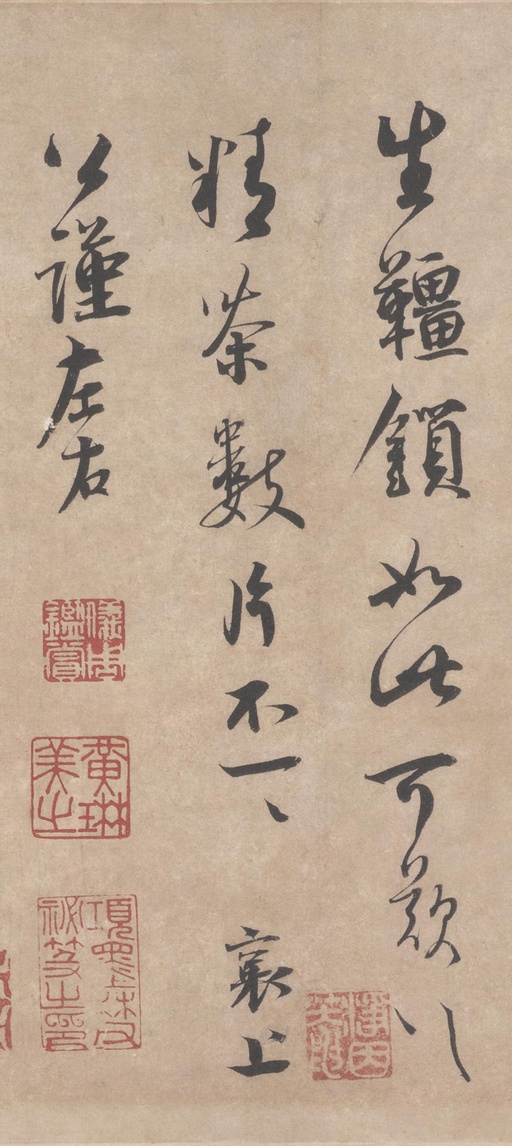 生韁鎖如此可歎〻
精茶數片不一〻 襄上
公謹左右
儀周鑑賞
黃琳美之
項墨林父祕笈之印